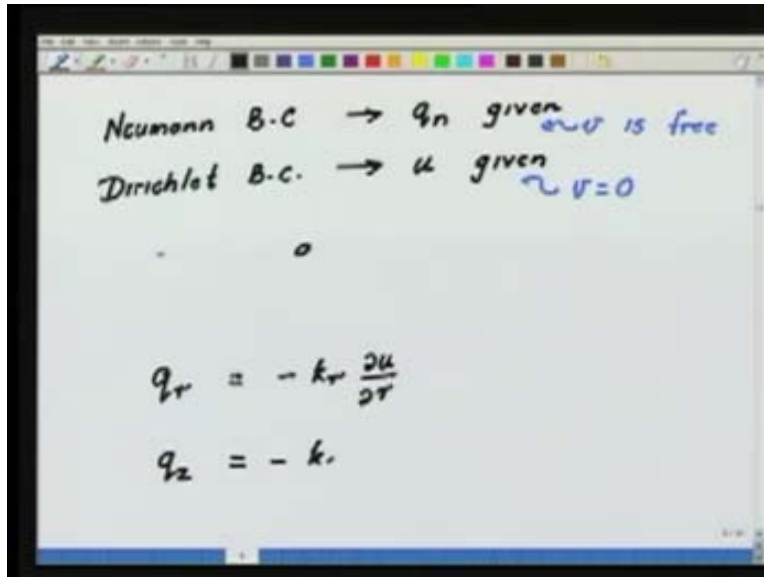 Neumann B.C → qn given ~ v is free
Dirichlet B.C. → u given ~ v=0
qr = - kr ∂u/∂r
qz = - k.